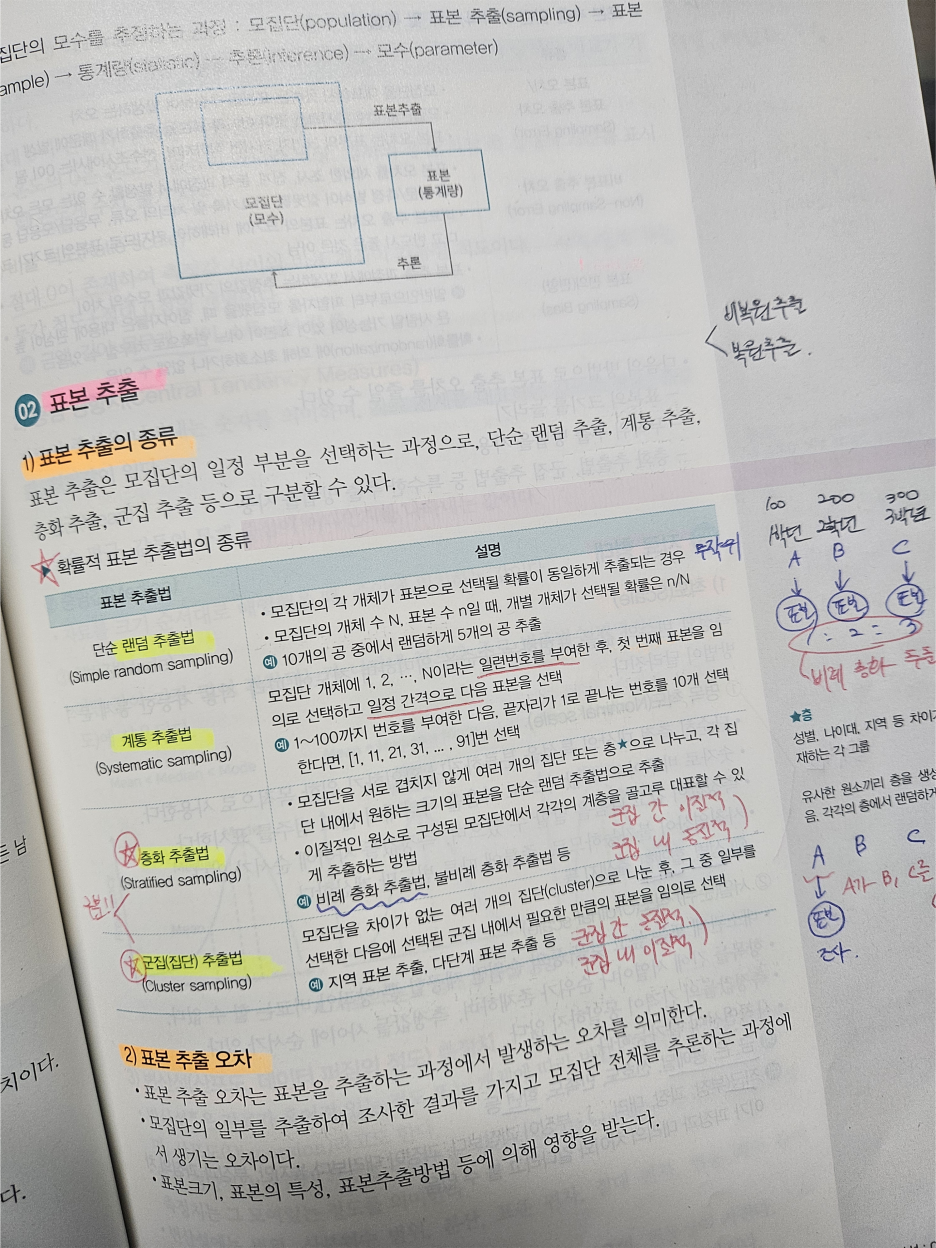 집단의 모수를 추정하는 과정 : 모집단(population) → 표본 추출(sampling) → 표본
ample) → 통계량(statistic) → 추론(inference) → 모수(parameter)
표본추출
모집단
(모수)
표본
(통계량)
추론
비복원추출
복원추출.
02 표본 추출
1) 표본 추출의 종류
표본 추출은 모집단의 일정 부분을 선택하는 과정으로, 단순 랜덤 추출, 계통 추출,
층화 추출, 군집 추출 등으로 구분할 수 있다.
확률적 표본 추출법의 종류
표본 추출법
설명
무작위
단순 랜덤 추출법
(Simple random sampling)
• 모집단의 각 개체가 표본으로 선택될 확률이 동일하게 추출되는 경우
• 모집단의 개체 수 N, 표본 수 n일 때, 개별 개체가 선택될 확률은 n/N
예 10개의 공 중에서 랜덤하게 5개의 공 추출
계통 추출법
(Systematic sampling)
모집단 개체에 1, 2, …, N이라는 일련번호를 부여한 후, 첫 번째 표본을 임
의로 선택하고 일정 간격으로 다음 표본을 선택
예 1~100까지 번호를 부여한 다음, 끝자리가 1로 끝나는 번호를 10개 선택
한다면, [1, 11, 21, 31, … , 91]번 선택
층화 추출법
(Stratified sampling)
• 모집단을 서로 겹치지 않게 여러 개의 집단 또는 층★으로 나누고, 각 집
단 내에서 원하는 크기의 표본을 단순 랜덤 추출법으로 추출
• 이질적인 원소로 구성된 모집단에서 각각의 계층을 골고루 대표할 수 있
게 추출하는 방법
예 비례 층화 추출법, 불비례 층화 추출법 등
군집 간 이질적
군집 내 동질적
구분!!
군집(집단) 추출법
(Cluster sampling)
모집단을 차이가 없는 여러 개의 집단(cluster)으로 나눈 후, 그 중 일부를
선택한 다음에 선택된 군집 내에서 필요한 만큼의 표본을 임의로 선택
예 지역 표본 추출, 다단계 표본 추출 등
군집 간 동질적
군집 내 이질적
2) 표본 추출 오차
• 표본 추출 오차는 표본을 추출하는 과정에서 발생하는 오차를 의미한다.
• 모집단의 일부를 추출하여 조사한 결과를 가지고 모집단 전체를 추론하는 과정에
서 생기는 오차이다.
• 표본크기, 표본의 특성, 표본추출방법 등에 의해 영향을 받는다.
100 200 300
1학년 2학년 3학년
A B C
표본 표본 표본
1 : 2 : 3
비례 층화 추출
★층
성별, 나이대, 지역 등 차이가
재하는 각 그룹
유사한 원소끼리 층을 생성
음, 각각의 층에서 랜덤하게
A B C
A가 B, C를
표본
조사.
는 남
치이다.
다.